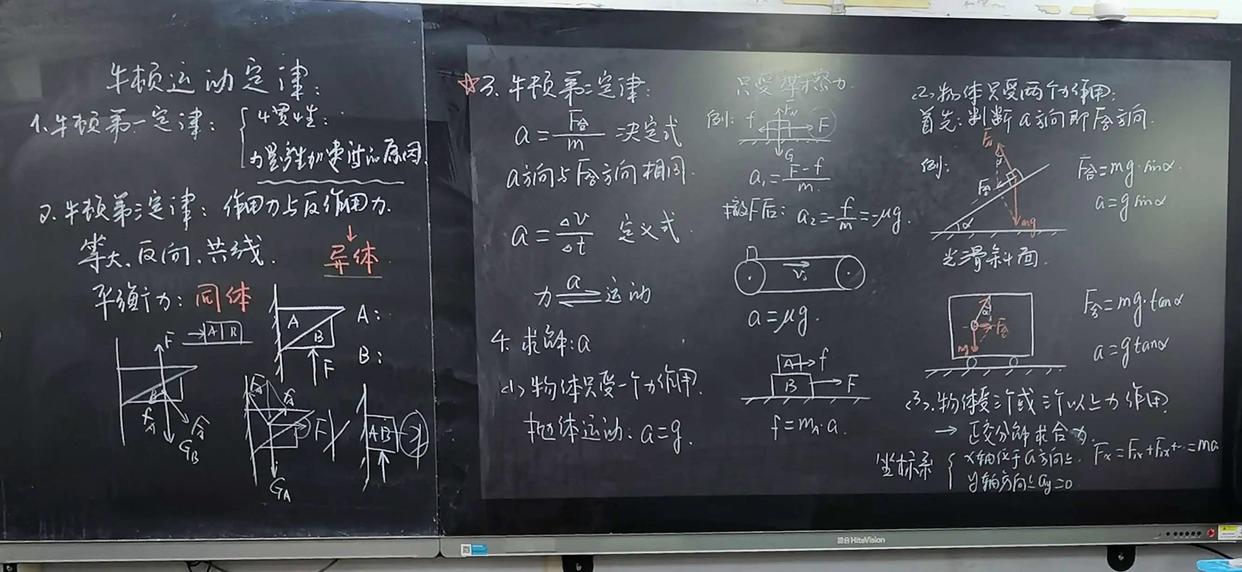 牛顿运动定律:
1.牛顿第一定律: 惯性:
力是产生加速度的原因
2.牛顿第三定律: 作用力与反作用力.
等大、反向、共线. 异体
平衡力: 同体
A B
A B F
A:
B:
F
G_B
F
G_A
A B
☆3.牛顿第二定律:
a = F合/m 决定式
a方向与F合方向相同.
a = Δv/Δt 定义式.
力 a 运动
4.求解:a
(1).物体只受一个力作用.
抛体运动: a=g.
只受摩擦力
例: f F_N F
G
a₁ = F-f/m
撤F后: a₂ = -f/m = -μg.
v₀
a = μg.
A f
B F
f = m_A·a.
(2).物体只受两个力作用:
首先:判断a方向即F合方向.
例:
F_N α
F合
mg
α
F合 = mg·sinα.
a = gsinα
光滑斜面.
α
F合
mg
F合 = mg·tanα
a = gtanα
(3).物体受三个或三个以上力作用.
→ 正交分解求合力.
坐标系 x轴位于a方向上. Fx = F₁x+F₂x+… = ma
y轴方向上ay=0
HiteVision